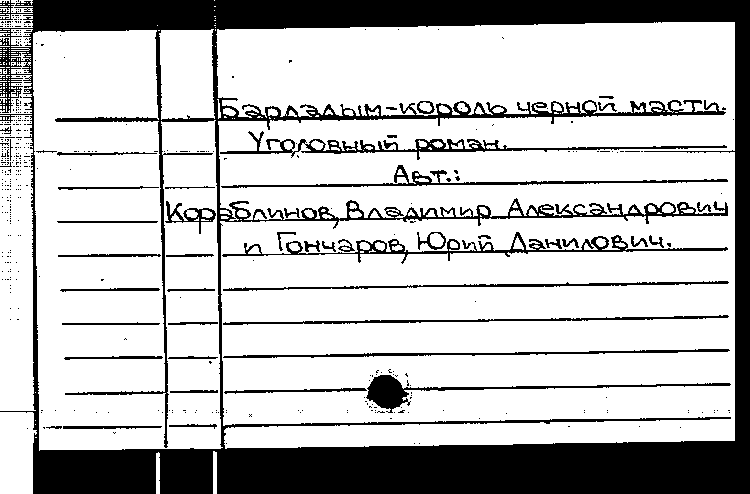 Бардадым-король черной масти.
Уголовный роман.
Авт.:
Кораблинов, Владимир Александрович
и Гончаров, Юрий Данилович.